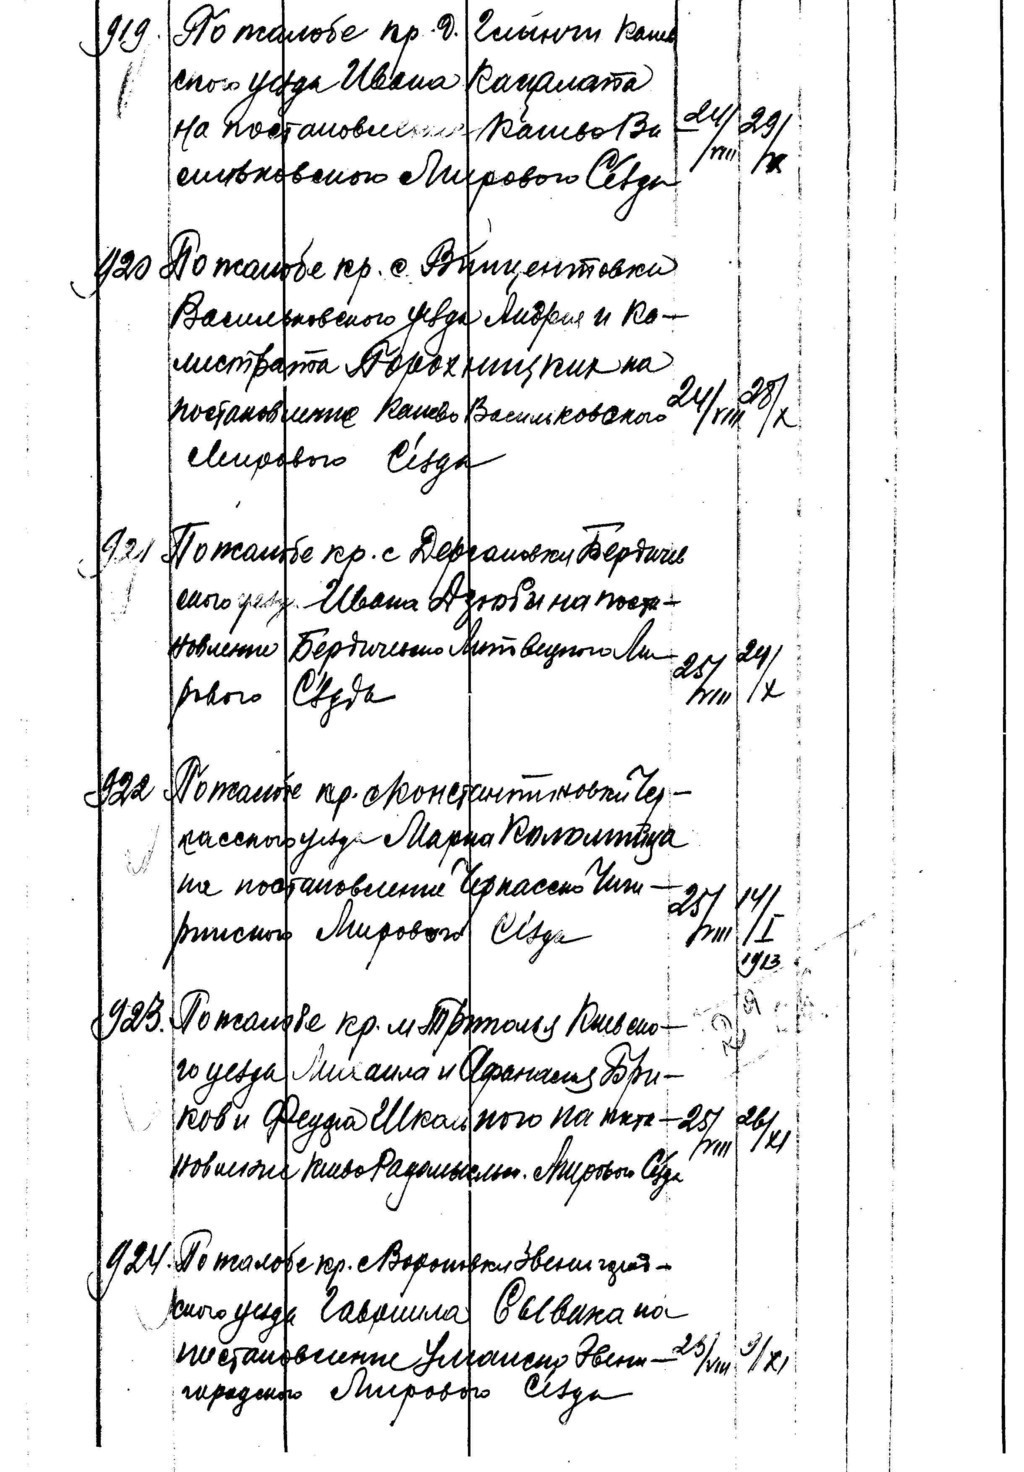 919. По жалобе кр. д. Глинчи Канев
ского уезда Ивана Кацалапа
на постановление Канево Ва
сильковского Мирового Сезда 24/VIII 29/X
920 По жалобе кр. с. Винцентовки
Васильковского уезда Андрея и Ка-
листрата Порохницких на
постановление Канево Васильковского 24/VIII 28/X
Мирового Сезда
921 По жалобе кр. с Дергановки Бердичев
ского уезд. Ивана Дзюбы на поста-
новление Бердичевско Липовецкого Ми
рового Сезда 25/VIII 24/X
922 По жалобе кр. с Константиновки Чер-
касского уезда Марка Коломийца
на постановление Черкасско Чиги-
ринского Мирового Сезда 25/VIII 14/I
1913
923. По жалобе кр. м Триполья Киевско-
го уезда Михаила и Афанасия Бри-
ков и Федора Школьного на поста- 25/VIII 26/XI
новление Киево Радомысльск. Мирового Сезда
924. По жалобе кр. с Вороновки Звенигород-
ского уезда Гавриила Сывака на
постановление Уманско Звени- 25/VIII 9/XI
городского Мирового Сезда